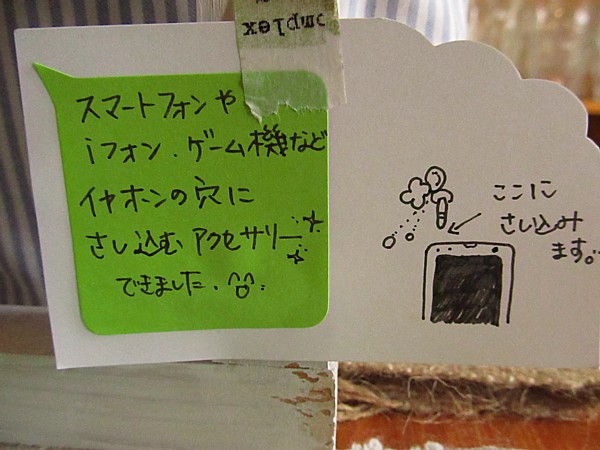 スマートフォンや
iフォン、ゲーム機など
イヤホンの穴に
さし込むアクセサリー
できました。
ここに
さし込み
ます。